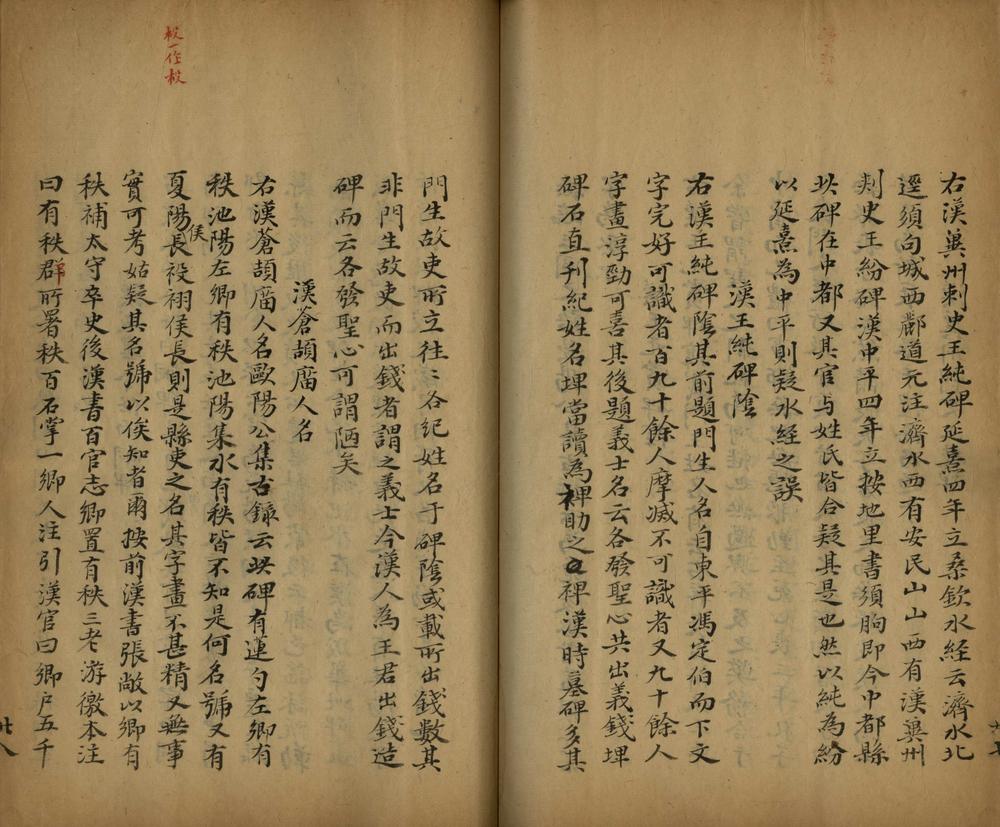 右漢兾州刺史王純碑延熹四年立桑欽水経云濟水北
逕須句城西酈道元注濟水西有安民山山西有漢兾州
刾史王紛碑漢中平四年立按地里書須朐即今中都縣
此碑在中都又其官与姓氏皆合疑其是也然以純為紛
以延熹為中平則疑水経之誤
漢王純碑陰
右漢王純碑陰其前題門生人名自東平馮定伯而下文
字完好可識者百九十餘人摩滅不可識者又九十餘人
字畫淳勁可喜其後題義士名云各發聖心共出義錢埤
碑石直刊紀姓名埤當讀為裨助之裨漢時墓碑多其
廿七
校一作殺
門生故吏所立往〻各纪姓名于碑陰或載所出錢数其
非門生故吏而出錢者謂之義士今漢人為王君出錢造
碑而云各發聖心可謂陋矣
漢蒼頡庿人名
右漢蒼頡庿人名歐陽公集古錄云此碑有蓮勺左卿有
秩池陽左卿有秩池陽集水有秩皆不知是何名號又有
夏陽長祋祤侯長則是縣吏之名其字畫不甚精又無事
侯
實可考姑疑其名號以俟知者爾按前漢書張敞以卿有
秩補太守卒史後漢書百官志卿置有秩三老游徼本注
曰有秩群所署秩百石掌一鄉人注引漢官曰鄉户五千
廿八